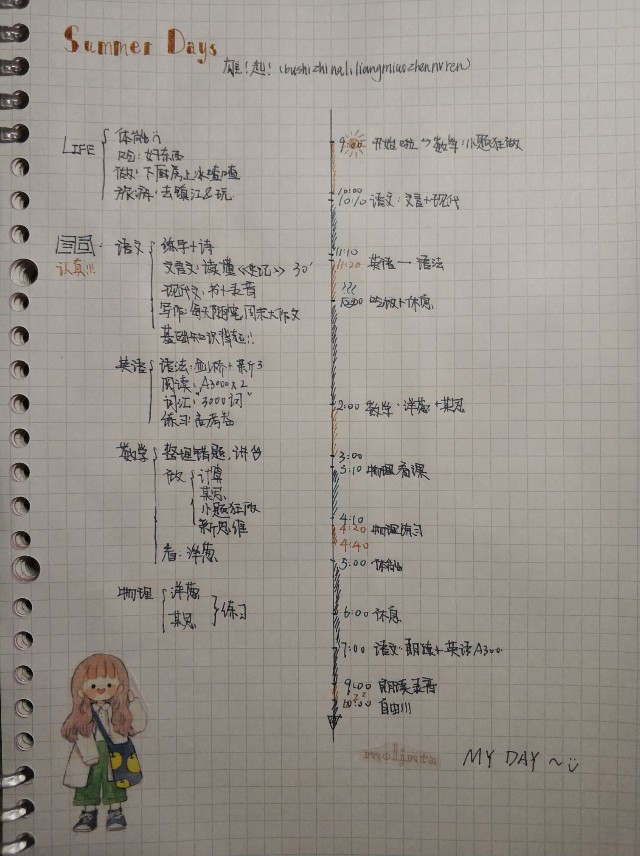 Summer Days
雄!起!(bushizhinaliliangmiaozhennvren)
LIFE
体锻
吃:好东西
做:下厨房上冰喳喳
旅游:去镇江&玩
认真!!!
语文
练字+诗
文言文:读懂《史记》 30'
现代文:书+录音
写作:每天随笔,周末大作文
基础知识背起!
英语
语法:剑桥+新3
阅读:A3000x2
词汇:"3000词"
练习:高考卷
数学
整理错题,讲台
做
计算
某思
小题狂做
新思维
看:洋葱
物理
洋葱
某思
练习
9:00 开始啦→数学:小题狂做
10:00
10:10 语文:文言+现代
11:10
11:20 英语—语法
吃饭+休息
2:00 数学:洋葱+某思
3:00
3:10 物理看课
4:10
4:20 物理练习
4:40
5:00 体锻
6:00 休息
7:00 语文:朗读+英语A300
9:00 朗读录音
10:00 自由!!!
MY DAY~